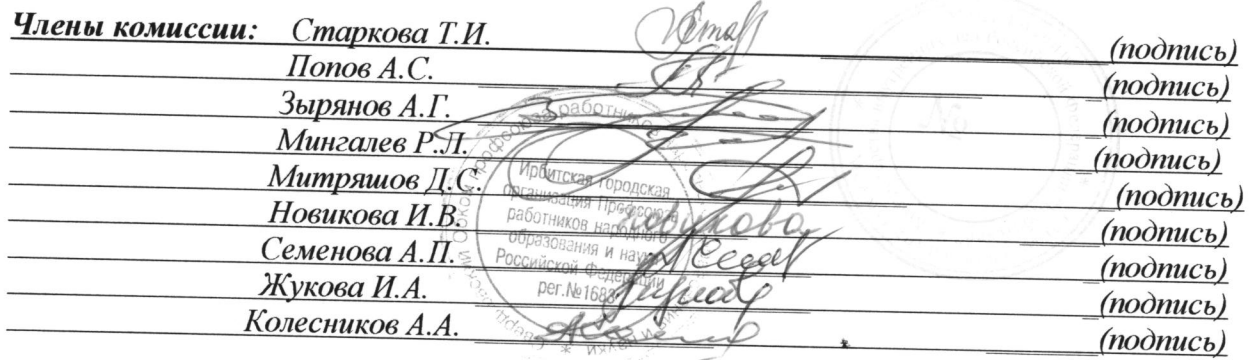 Члены комиссии: Старкова Т.И. (подпись)
Попов А.С. (подпись)
Зырянов А.Г. (подпись)
Мингалев Р.Л. (подпись)
Митряшов Д.С. (подпись)
Новикова И.В. Новикова (подпись)
Семенова А.П. (подпись)
Жукова И.А. (подпись)
Колесников А.А. (подпись)
Ирбитская городская
организация Профсоюза
работников народного
образования и науки
Российской Федерации
рег.№1683